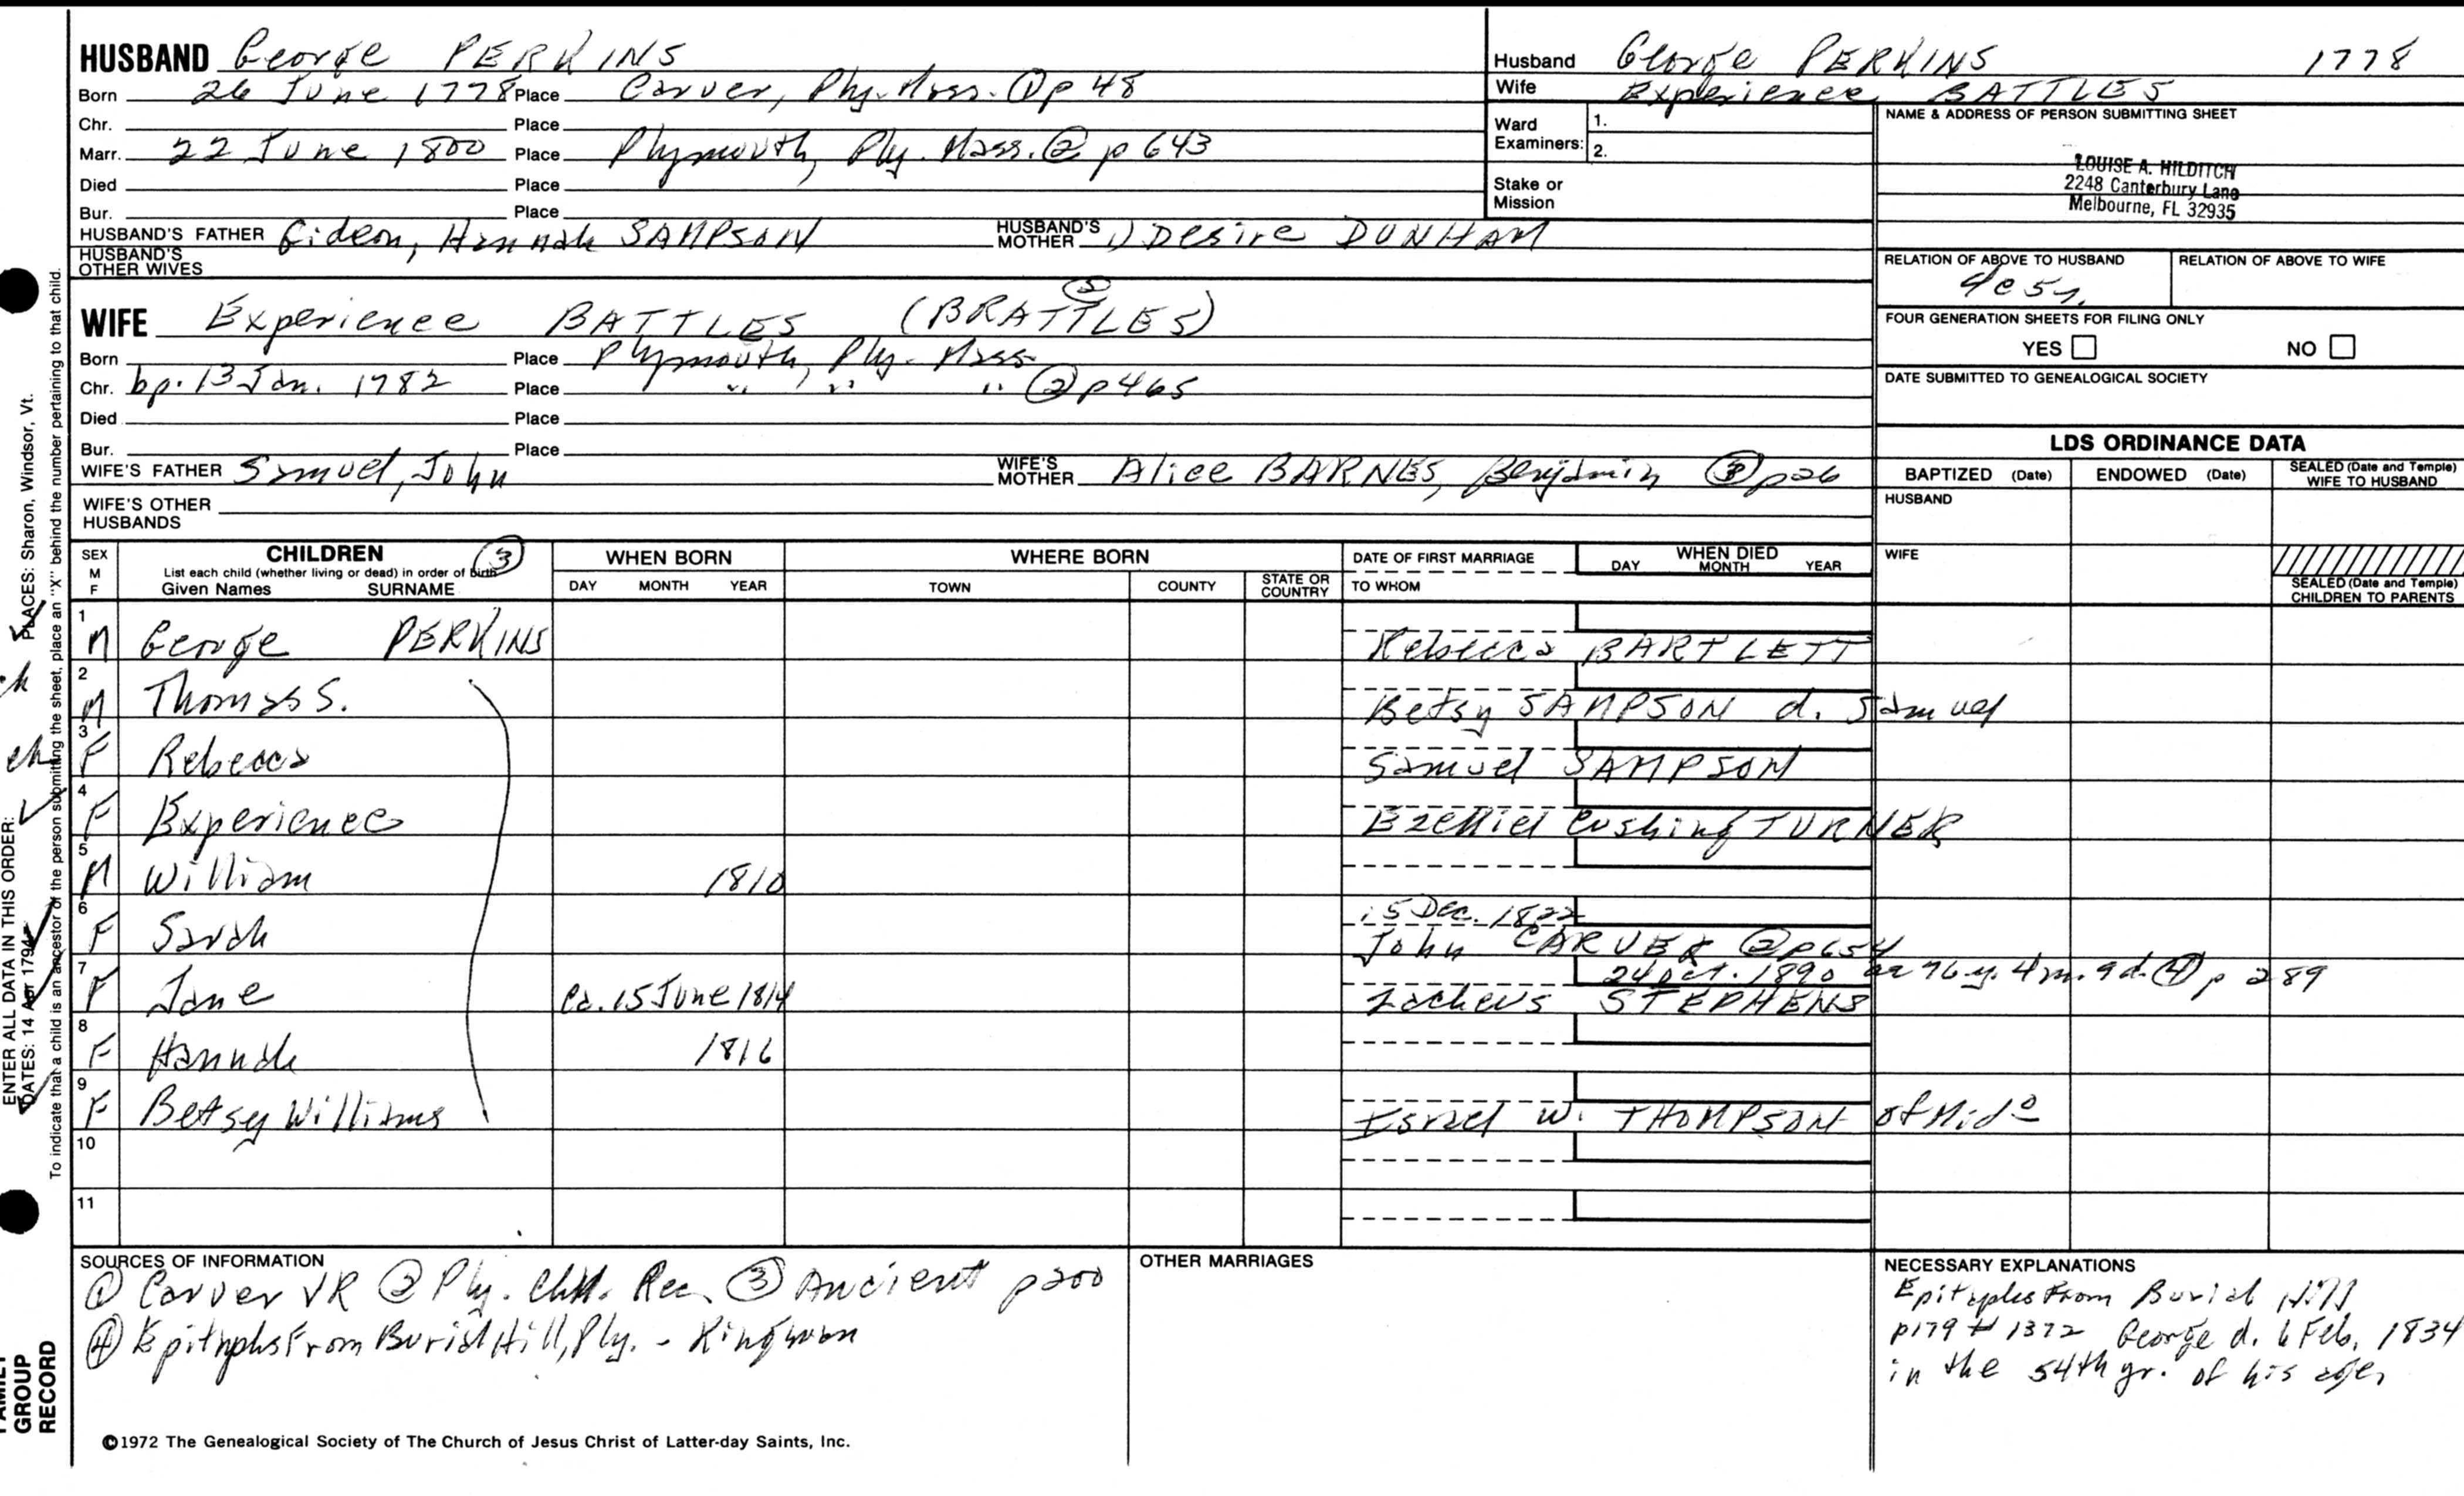 HUSBAND George PERKINS
Born 26 June 1778 Place Carver, Ply. Mass. ① p 48
Chr. Place
Marr. 22 June 1800 Place Plymouth, Ply. Mass. ② p 643
Died Place
Bur. Place
HUSBAND'S FATHER Gideon, Hannah SAMPSON HUSBAND'S MOTHER 1) Desire DUNHAM
HUSBAND'S OTHER WIVES
Husband George PERKINS 1778
Wife Experience BATTLES
Ward Examiners: 1.
2.
Stake or Mission
NAME & ADDRESS OF PERSON SUBMITTING SHEET
LOUISE A. HILDITCH
2248 Canterbury Lane
Melbourne, FL 32935
RELATION OF ABOVE TO HUSBAND RELATION OF ABOVE TO WIFE
desn.
FOUR GENERATION SHEETS FOR FILING ONLY
YES NO
DATE SUBMITTED TO GENEALOGICAL SOCIETY
WIFE Experience BATTLES (BRATTLES) ②
Born Place Plymouth, Ply. Mass.
Chr. bp. 13 Jan. 1782 Place " " " ② p 465
Died Place
Bur. Place
WIFE'S FATHER Samuel, John WIFE'S MOTHER Alice BARNES, Benjamin ③ p 26
WIFE'S OTHER HUSBANDS
LDS ORDINANCE DATA
BAPTIZED (Date) ENDOWED (Date) SEALED (Date and Temple) WIFE TO HUSBAND
HUSBAND
WIFE
SEALED (Date and Temple) CHILDREN TO PARENTS
SEX M F
CHILDREN ③
List each child (whether living or dead) in order of birth
Given Names SURNAME
WHEN BORN
DAY MONTH YEAR
WHERE BORN
TOWN COUNTY STATE OR COUNTRY
DATE OF FIRST MARRIAGE
TO WHOM
WHEN DIED
DAY MONTH YEAR
1 M George PERKINS Rebecca BARTLETT
2 M Thomas S. Betsy SAMPSON d. Samuel
3 F Rebecca Samuel SAMPSON
4 F Experience Ezekiel Cushing TURNER
5 M William 1810
6 F Sarah 15 Dec. 1822 John CARVER ② p 654
7 F Jane ca. 15 June 1814 24 Oct. 1890 ae 76 y. 4 m. 9 d. ④ p 289
Zacheus STEPHENS
8 F Hannah 1816
9 F Betsy Williams Israel W. THOMPSON of Mido
10
11
SOURCES OF INFORMATION
① Carver VR ② Ply. Chh. Rec. ③ Ancient p 200
④ Epitaphs From Burial Hill, Ply. - Kingman
OTHER MARRIAGES
NECESSARY EXPLANATIONS
Epitaphs From Burial Hill
p179 # 1372 George d. 6 Feb. 1834
in the 54th yr. of his age,
©1972 The Genealogical Society of The Church of Jesus Christ of Latter-day Saints, Inc.
ENTER ALL DATA IN THIS ORDER:
DATES: 14 Apr 1794 PLACES: Sharon, Windsor, Vt.
To indicate that a child is an ancestor of the person submitting the sheet, place an "X" behind the number pertaining to that child.
FAMILY GROUP RECORD